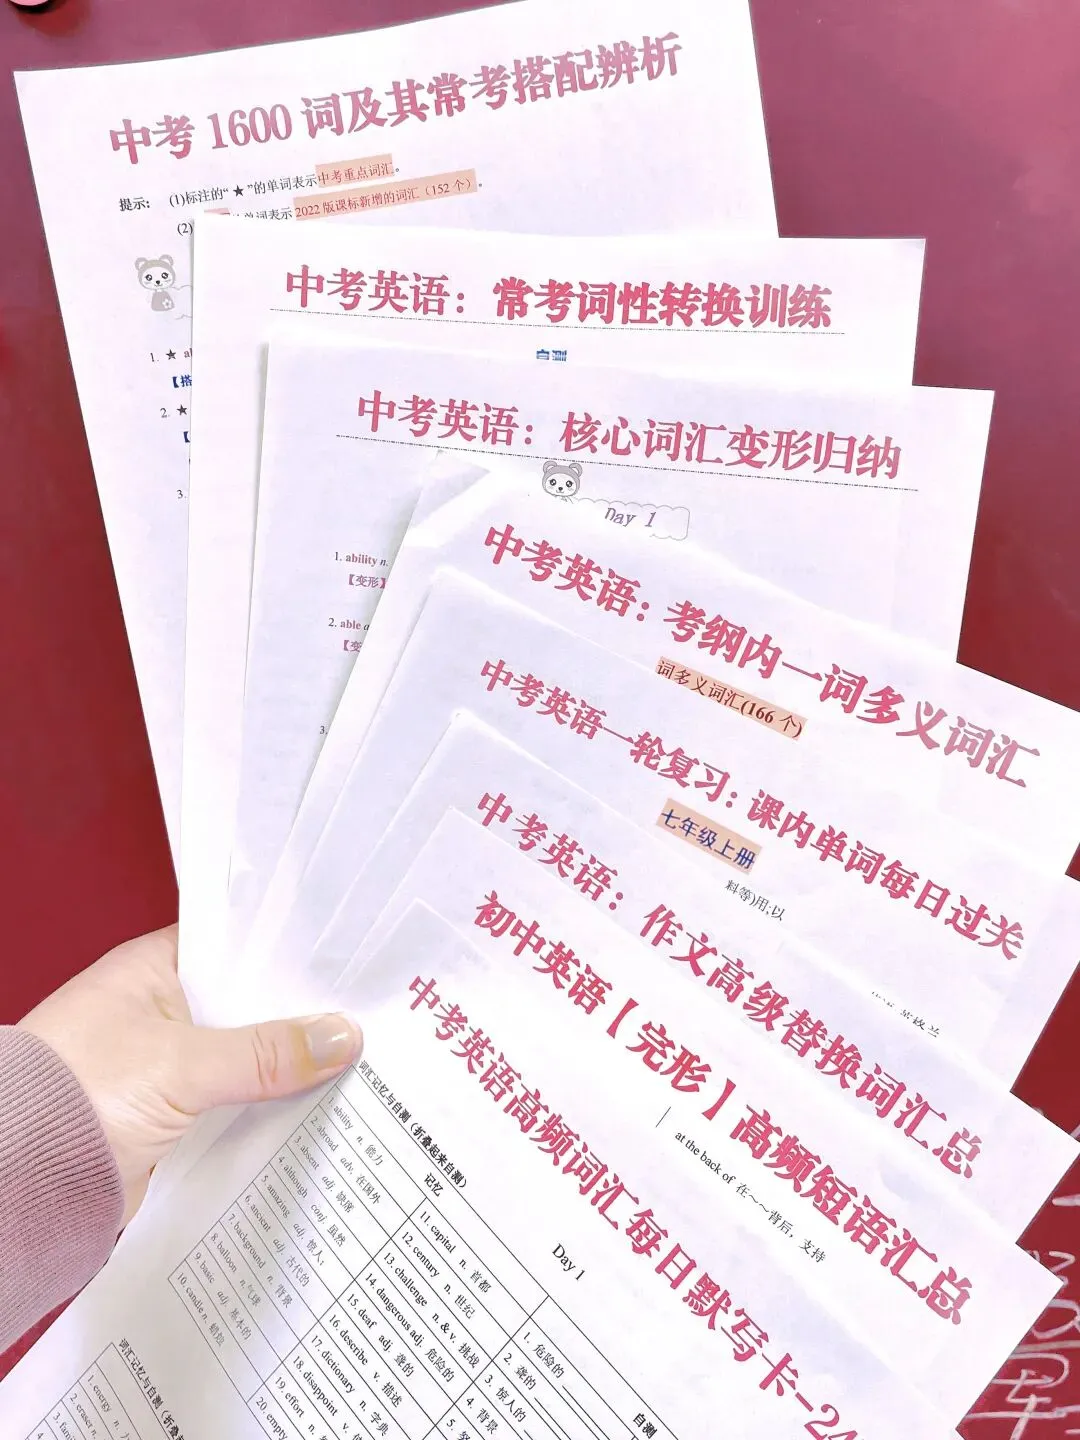 中考 1600 词及其常考搭配辨析
提示： (1)标注的“★”的单词表示中考重点词汇。
(2) 单词表示 2022 版课标新增的词汇（152 个）。
1. ★
【搭
2. ★
【
3.
中考英语：常考词性转换训练
自测
中考英语：核心词汇变形归纳
Day 1
1. ability n.
【变形】
2. able
【变
3.
中考英语：考纲内一词多义词汇
词多义词汇(166 个)
中考英语一轮复习：课内单词每日过关
七年级上册
料等)用;以
中考英语：作文高级替换词汇总
初中英语【完形】高频短语汇总
at the back of 在～～背后，支持
中考英语高频词汇每日默写卡-24
Day 1
词汇记忆与自测（折叠起来自测）
记忆
自测
1. ability n. 能力
2. abroad adv. 在国外
3. absent adj. 缺席
4. although conj. 虽然
5. amazing adj. 惊人;
6. ancient adj. 古代的
7. background n. 背景
8. balloon n. 气球
9. basic adj. 基本的
10. candle n. 蜡烛
11. capital n. 首都
12. century n. 世纪
13. challenge n. & v. 挑战
14. dangerous adj. 危险的
15. deaf adj. 聋的
16. describe v. 描述
17. dictionary n. 字典
18. disappoint v. 使
19. effort n.
20. empty
1. 危险的
2. 聋的
3. 惊人的
4. 背景
5.
词汇记忆与自测（折
1. energy n.
2. eraser n.
3.